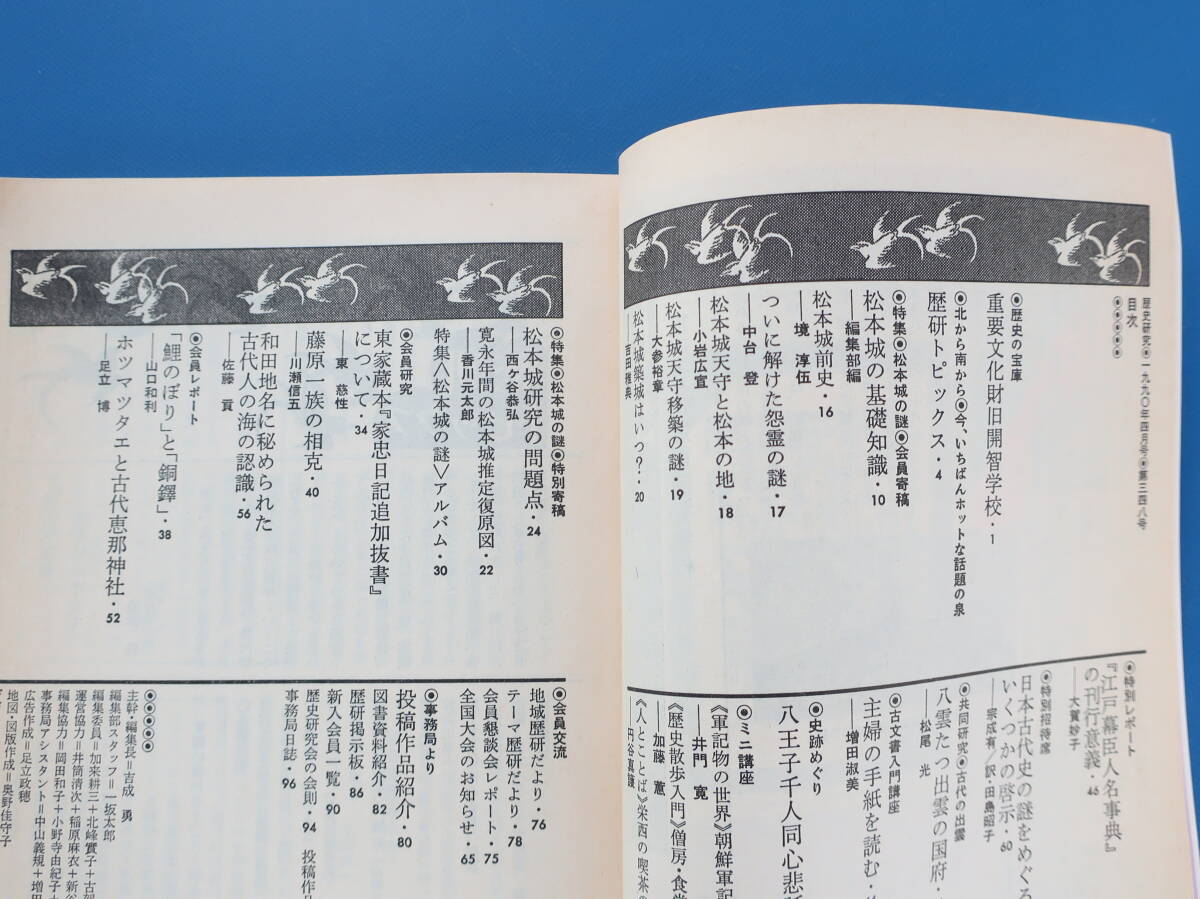 歴史研究◉一九九〇年四月号◉第三四八号
目次
◉歴史の宝庫
重要文化財旧開智学校・1
◉北から南から◉今、いちばんホットな話題の泉
歴研トピックス・4
◉特集◉松本城の謎◉会員寄稿
松本城の基礎知識・10
——編集部編
松本城前史・16
——境 淳伍
ついに解けた怨霊の謎・17
——中台 登
松本城天守と松本の地・18
——小岩広宣
松本城天守移築の謎・19
——大参裕章
松本城築城はいつ?・20
——吉田雅典
◉特別レポート
『江戸幕臣人名事典』
の刊行意義・46
——大賀妙子
◉特別招待席
日本古代史の謎をめぐる
いくつかの啓示・60
——宗成有/訳・田島昭子
◉共同研究◉古代の出雲
八雲たつ出雲の国府・
——松尾 光
◉古文書入門講座
主婦の手紙を読む・
——増田淑美
◉史跡めぐり
八王子千人同心悲話
◉ミニ講座
《軍記物の世界》朝鮮軍記
——井門 寛
《歴史散歩入門》僧房・食堂
——加藤 蕙
《人とことば》栄西の喫茶の
——円谷真護
◉特集◉松本城の謎◉特別寄稿
松本城研究の問題点・24
——西ヶ谷恭弘
寛永年間の松本城推定復原図・22
——香川元太郎
特集〈松本城の謎〉アルバム・30
◉会員研究
東家蔵本『家忠日記追加抜書』
について・34
——東 慈性
藤原一族の相克・40
——川瀬信五
和田地名に秘められた
古代人の海の認識・56
——佐藤 貢
◉会員レポート
「鯉のぼり」と「銅鐸」・38
——山口和利
ホツマツタエと古代恵那神社・52
——足立 博
◉会員交流
地域歴研だより・76
テーマ歴研だより・78
会員懇談会レポート・75
全国大会のお知らせ・65
◉事務局より
投稿作品紹介・80
図書資料紹介・82
歴研掲示板・86
新入会員一覧・90
歴史研究会の会則・94 投稿作品
事務局日誌・96
主幹・編集長=吉成 勇
編集部スタッフ=一坂太郎
編集委員=加来耕三+北峰實子+古賀
運営協力=井筒清次+稲原麻衣+新谷
編集協力=岡田和子+小野寺由紀子+
事務局アシスタント=中山義規+増田
広告作成=足立政穂
地図・図版作成=奥野佳守子